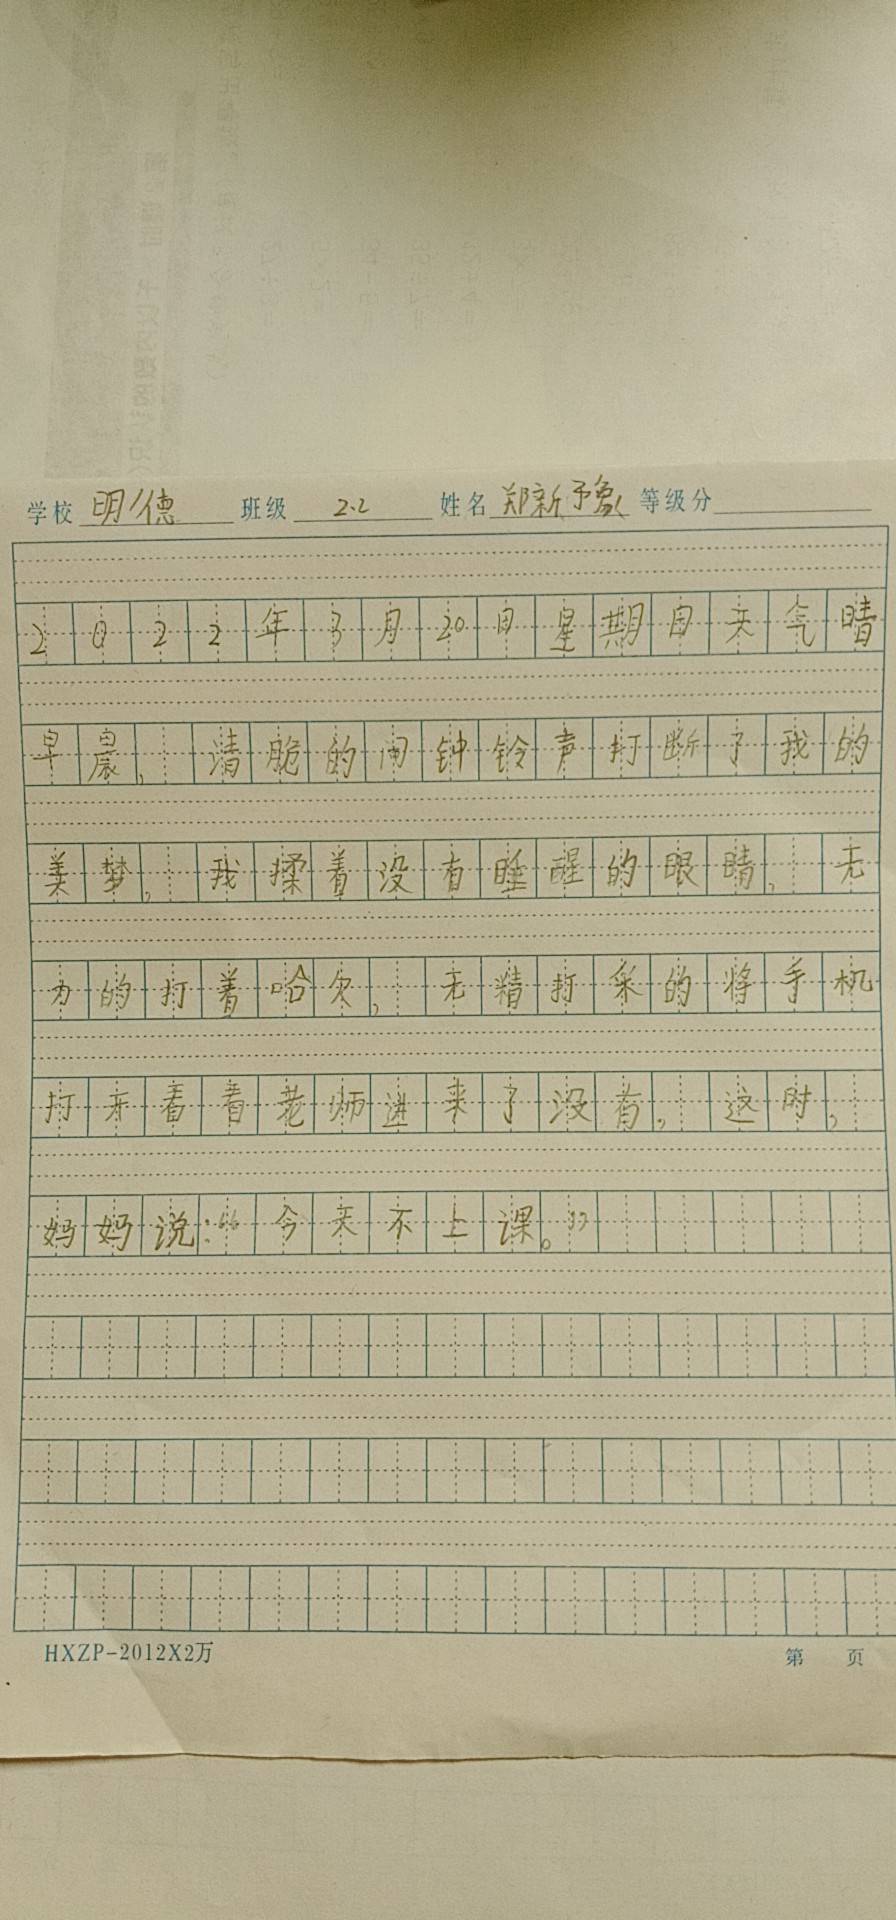 学校 明德 班级 2.2 姓名 郑新予象 等级分
2022年3月20日星期日天气晴
早晨，清脆的闹钟铃声打断了我的
美梦，我揉着没有睡醒的眼睛，无
力的打着哈欠，无精打采的将手机
打开看看老师进来了没有，这时，
妈妈说：“今天不上课。”
HXZP-2012X2万
第 页